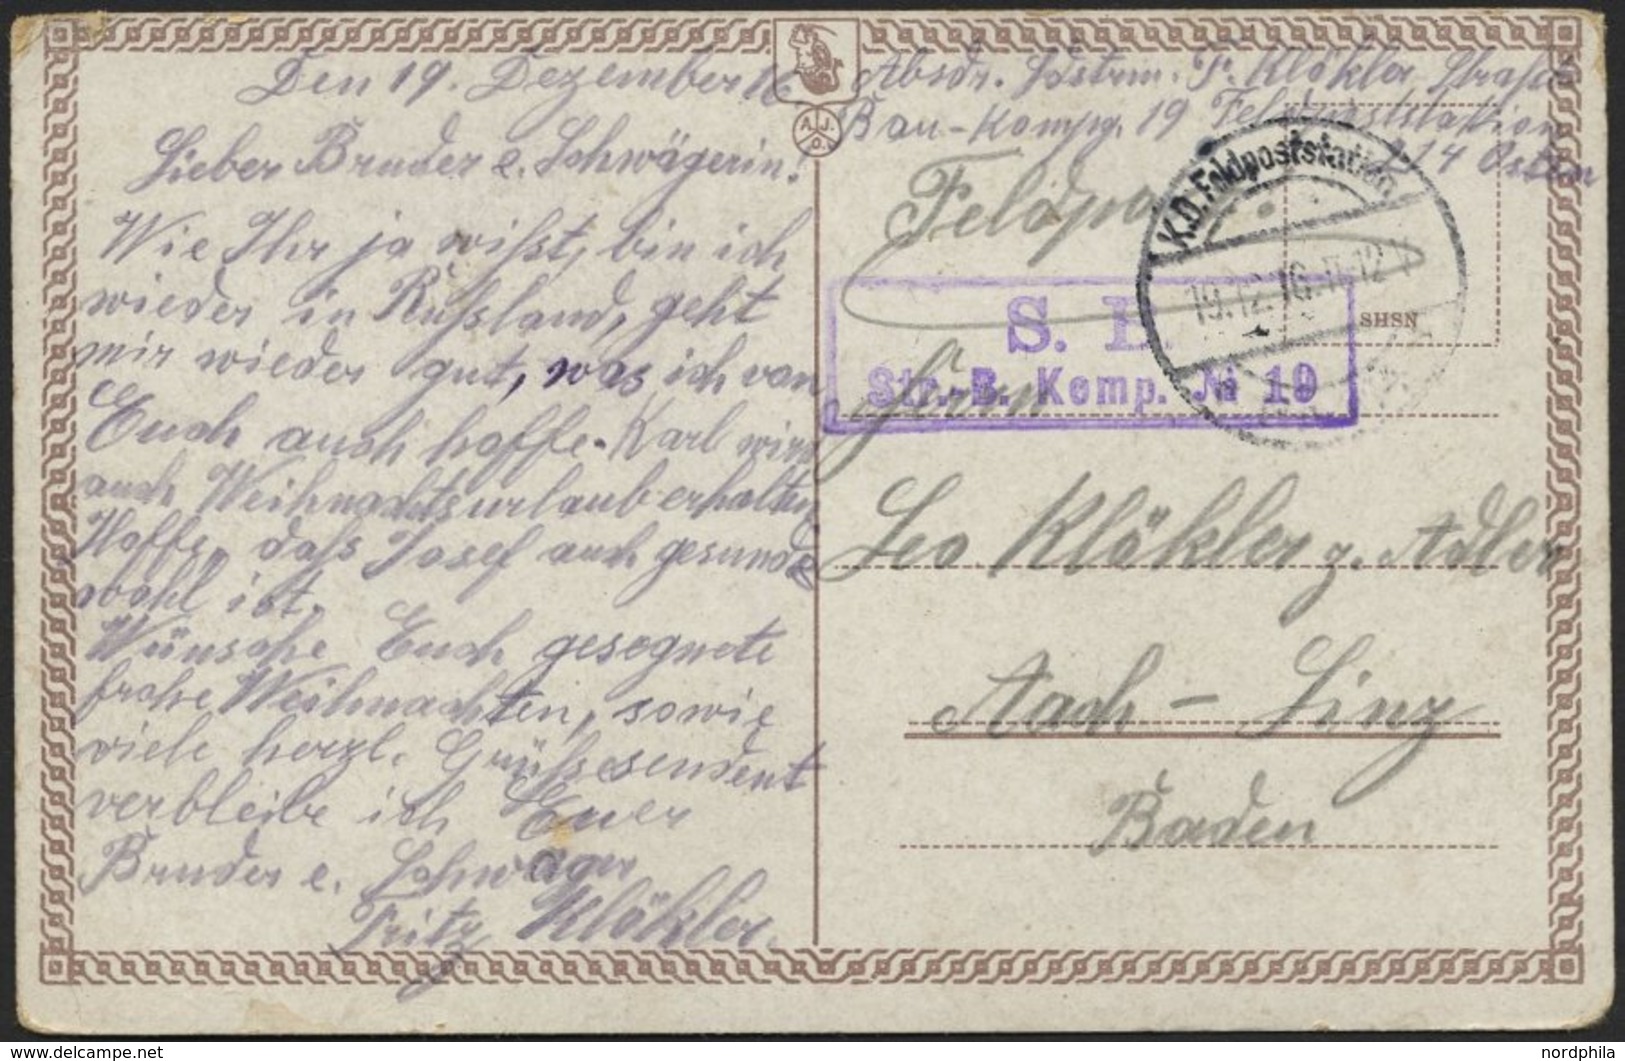 Den 19. Dezember 16
Lieber Bruder e. Schwägerin!
Wie Ihr ja wißt, bin ich
wieder in Rußland, geht
mir wieder gut, was ich von
Euch auch hoffe. Karl wird
auch Weihnachtsurlaub erhalten
Hoffe, daß Josef auch gesund e
wohl ist.
Wünsche Euch gesegnete
frohe Weihnachten, sowie
viele herzl. Grüße sendent
verbleibe ich Euer
Bruder e. Schwager
Fritz Klökler.
A. J. D.
Absdr. Ldstrm. F. Klökler Straße
Bau-Kompg. 19 Feldpoststation
214 Osten
Feldpo
K.D. Feldpoststation
19.12.16. 11-12
SHSN
S. B.
Str.-B. Komp. № 19
Herrn
Leo Klökler z. Adler
Aach - Linz
Baden
nordphila